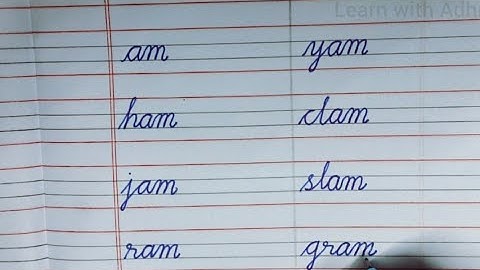 Learn with Adhi
am yam
ham clam
jam slam
ram gram